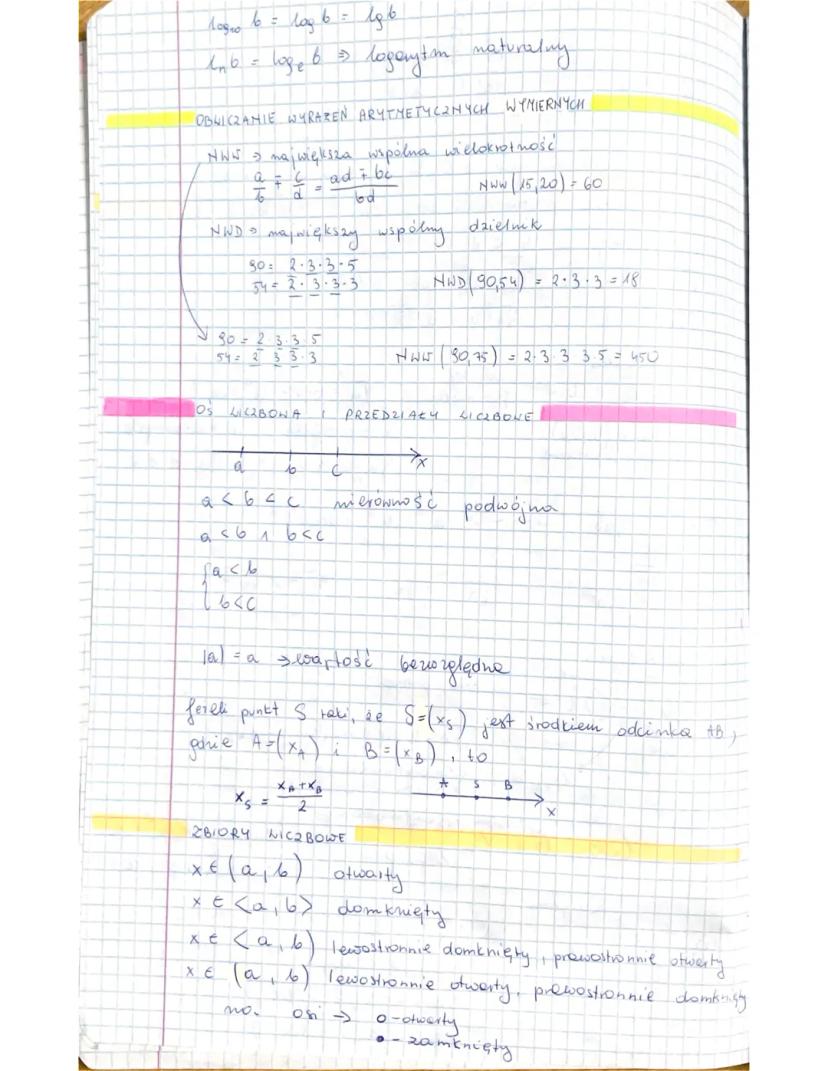 log₁₀ b = log b = lg b
ln b = logₑ b ⇒ logarytm naturalny
OBLICZANIE WYRAŻEŃ ARYTMETYCZNYCH WYMIERNYCH
NWW → największa wspólna wielokrotność
a/b ∓ c/d = (ad ∓ bc)/bd NWW(15,20) = 60
NWD → największy wspólny dzielnik
90 = 2·3·3·5
54 = 2·3·3·3 NWD(90,54) = 2·3·3 = 18
90 = 2·3·3·5
54 = 2 3 3·3 NWW(90,75) = 2·3 3 3·5 = 450
OŚ LICZBOWA I PRZEDZIAŁY LICZBOWE
a b c x
a < b < c nierówność podwójna
a < b ∧ b < c
{ a < b
b < c
|a| = a → wartość bezwzględna
Jeżeli punkt S taki, że S=(xₛ) jest środkiem odcinka AB,
gdzie A=(x_A) i B=(x_B), to
A S B
xₛ = (x_A + x_B)/2 x
ZBIORY LICZBOWE
x ∈ (a, b) otwarty
x ∈ <a, b> domknięty
x ∈ <a, b) lewostronnie domknięty, prawostronnie otwarty
x ∈ (a, b) lewostronnie otwarty, prawostronnie domknięty
na osi → o - otwarty
● - zamknięty